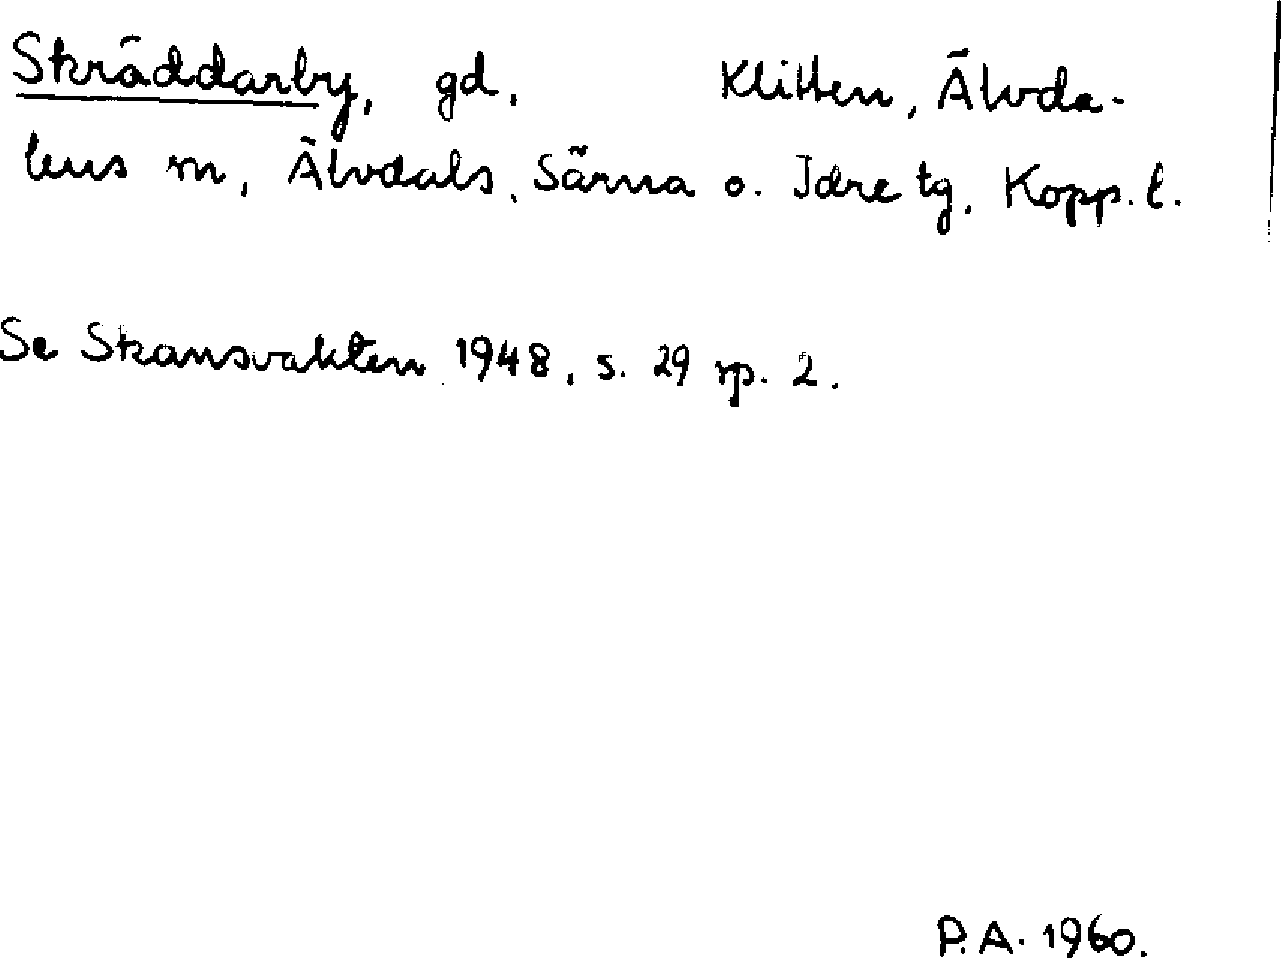 Skräddarby, gd, Klitten, Älvda-
lens m, Älvdals, Särna o. Idre tg, Kopp. l.
Se Skansvakten 1948, s. 29 sp. 2.
P.A. 1960.